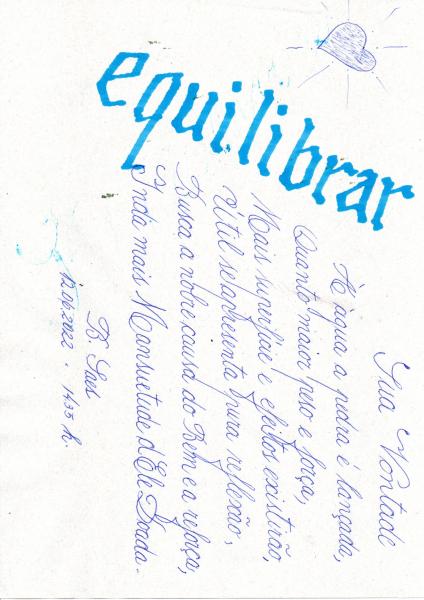 equilibrar
Sua Vontade
À água a pedra é lançada,
Quanto maior peso e força,
Mais superfície e efeitos existirão,
Útil se apresenta pura reflexão,
Busca a nobre causa do Bem e a reforça,
Inda mais Mansuetude d'Ele Doada.
B. Saes
12.09.2022 . 1435 h.